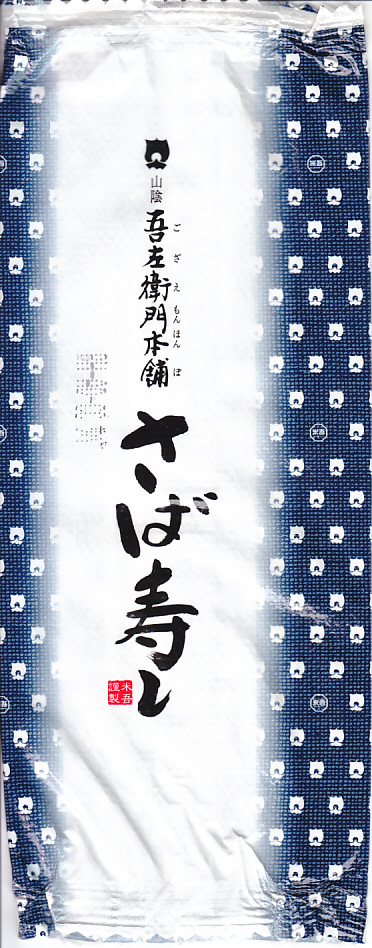 山陰
吾左衛門本舗
ござえもんほんぽ
さば寿し
米吾
謹製